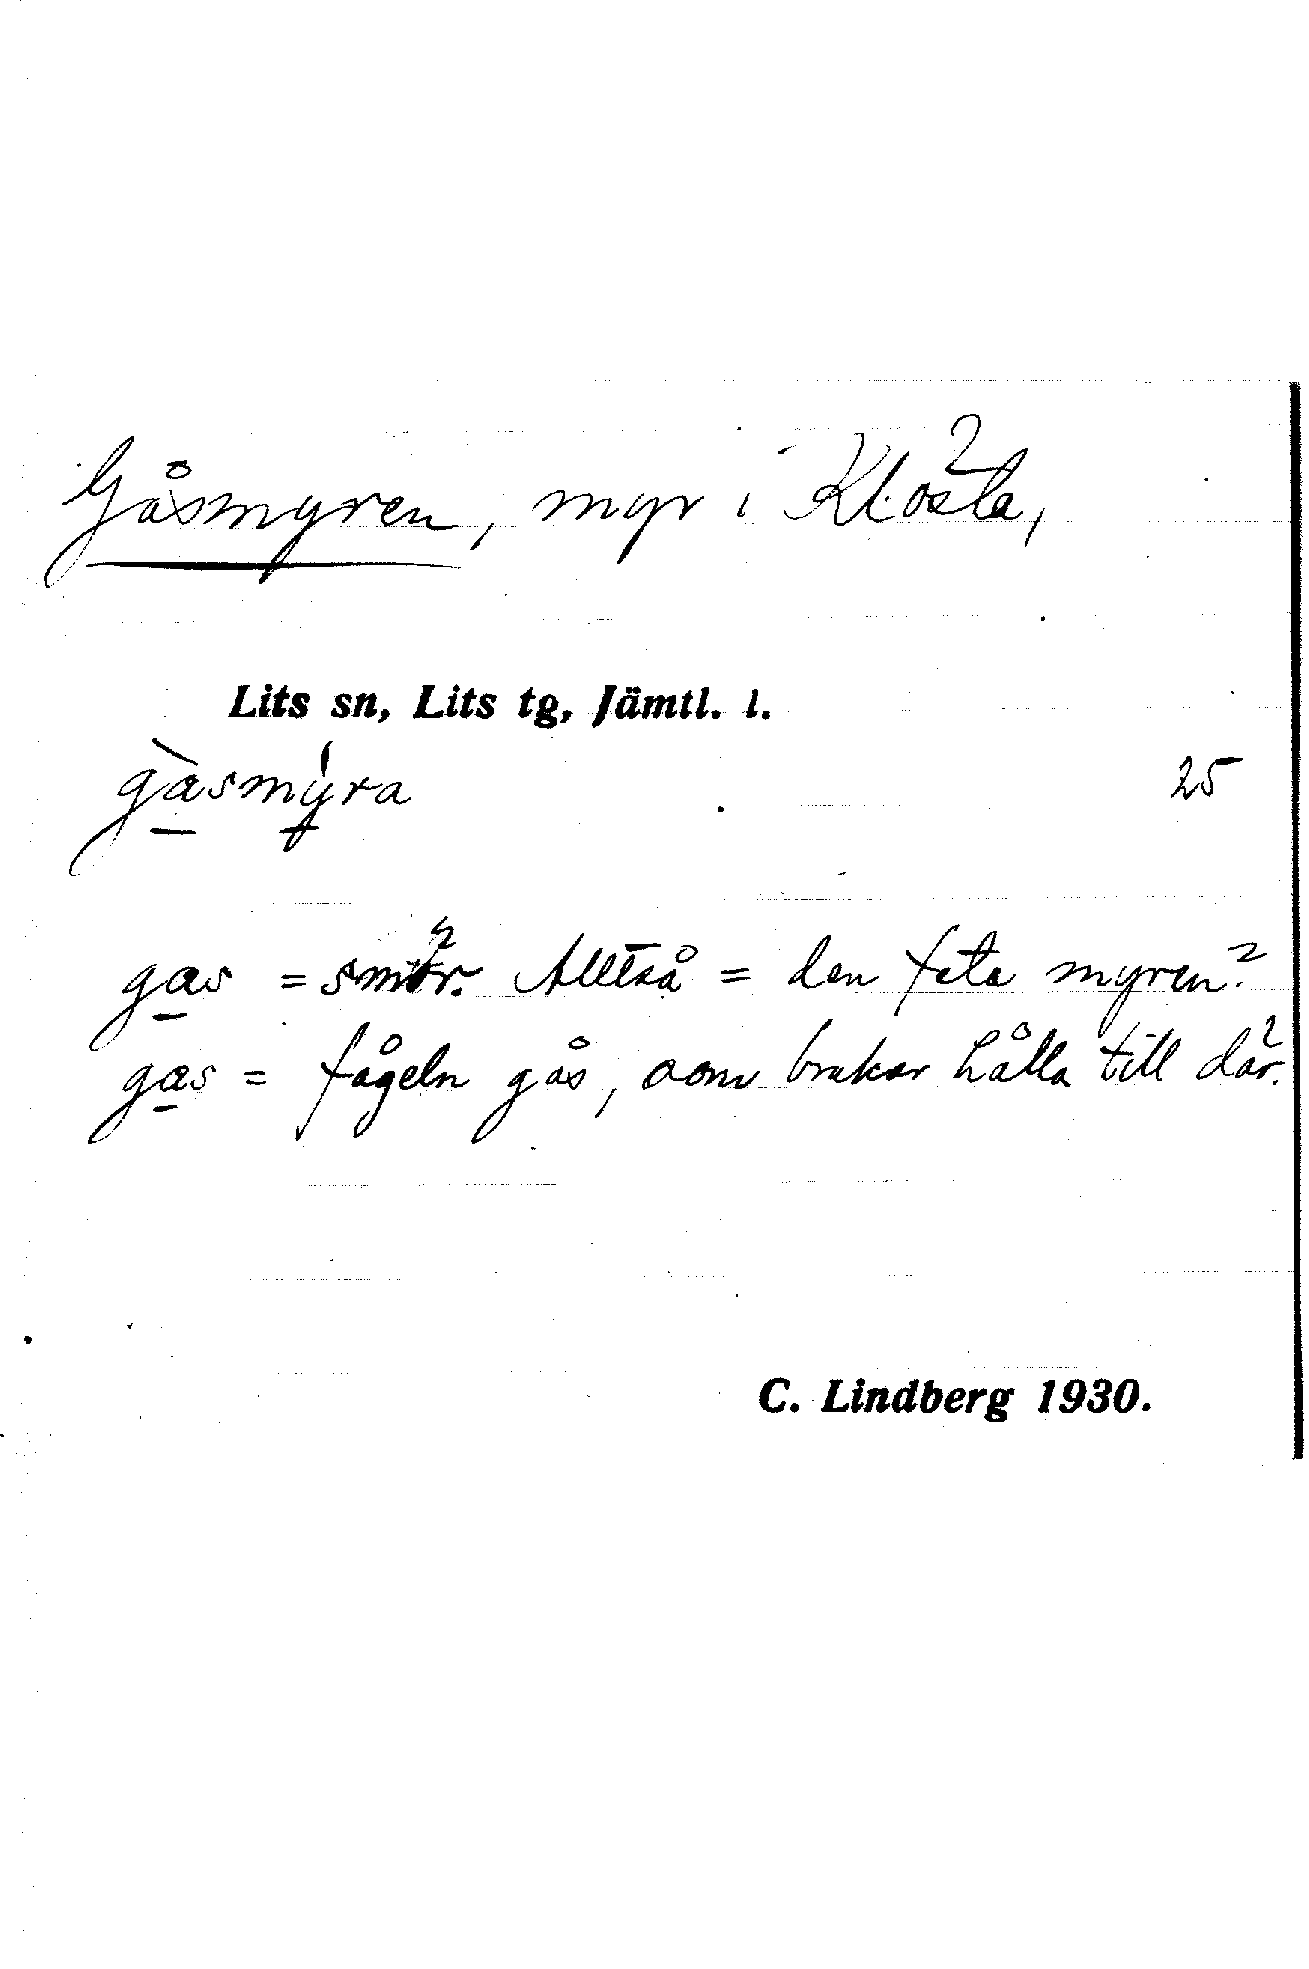 Gåsmyren, myr i Klösta,
Lits sn, Lits tg, Jämtl. l.
gàsmýra 25
gas = smör. Alltså = den feta myren?
gas = fågeln gås, som brukar hålla till där.
C. Lindberg 1930.